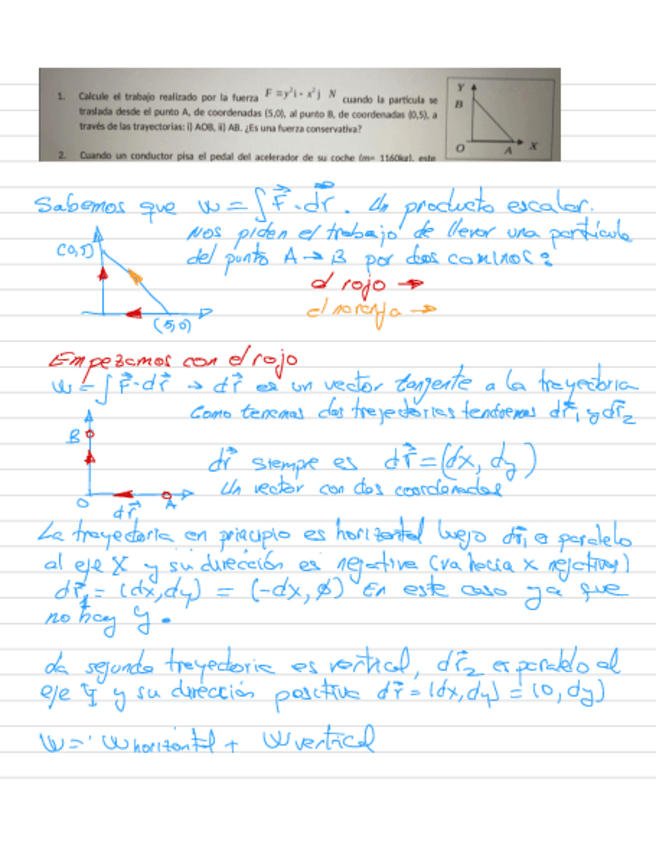 1. Calcule el trabajo realizado por la fuerza F = y²i - x²j N cuando la partícula se
traslada desde el punto A, de coordenadas (5,0), al punto B, de coordenadas (0,5), a
través de las trayectorias: i) AOB, ii) AB. ¿Es una fuerza conservativa?
2. Cuando un conductor pisa el pedal del acelerador de su coche (m= 1160kg), este
Y
B
O A X
Sabemos que w = ∫ F⃗ · dr⃗. Un producto escalar.
Nos piden el trabajo de llevar una partícula
del punto A → B por dos caminos:
el rojo →
el naranja →
(0,5)
(5,0)
Empezamos con el rojo
w = ∫ F⃗ · dr⃗ → dr⃗ es un vector tangente a la trayectoria
Como tenemos dos trayectorias tendremos dr⃗₁ y dr⃗₂
B
O dr⃗ A
dr⃗ siempre es dr⃗ = (dx, dy)
Un vector con dos coordenadas
La trayectoria en principio es horizontal luego dr⃗₁ es paralelo
al eje X y su dirección es negativa (va hacia x negativas)
dr⃗₁ = (dx, dy) = (-dx, 0) En este caso ya que
no hay y.
La segunda trayectoria es vertical, dr⃗₂ es paralelo al
eje Y y su dirección positiva dr⃗ = (dx, dy) = (0, dy)
W = W horizontal + W vertical